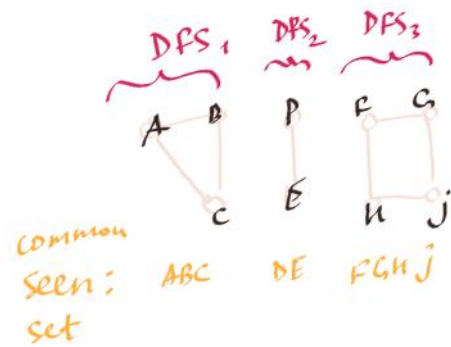 DFS1 DFS2 DFS3
A B D F G
C E H J
common
seen: ABC DE FGHJ
set